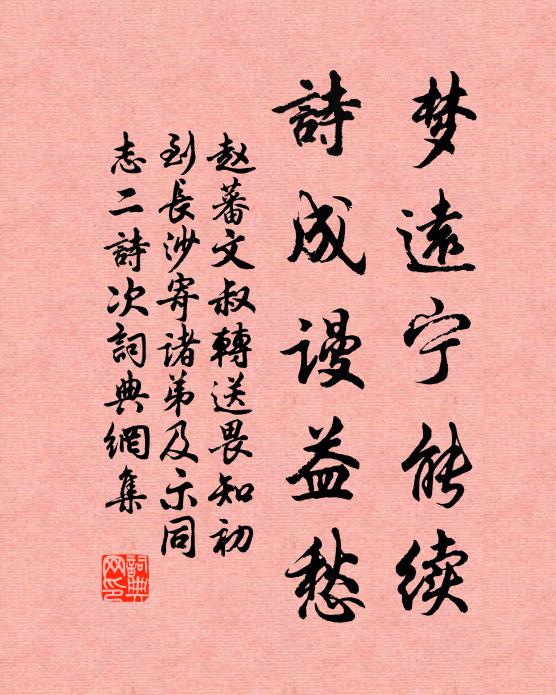 梦遠宁能续
詩成谩益愁
赵蕃文叔轉送畏知初
到長沙寄诸弟及示同
志二詩次詞典網集
詞典
网印